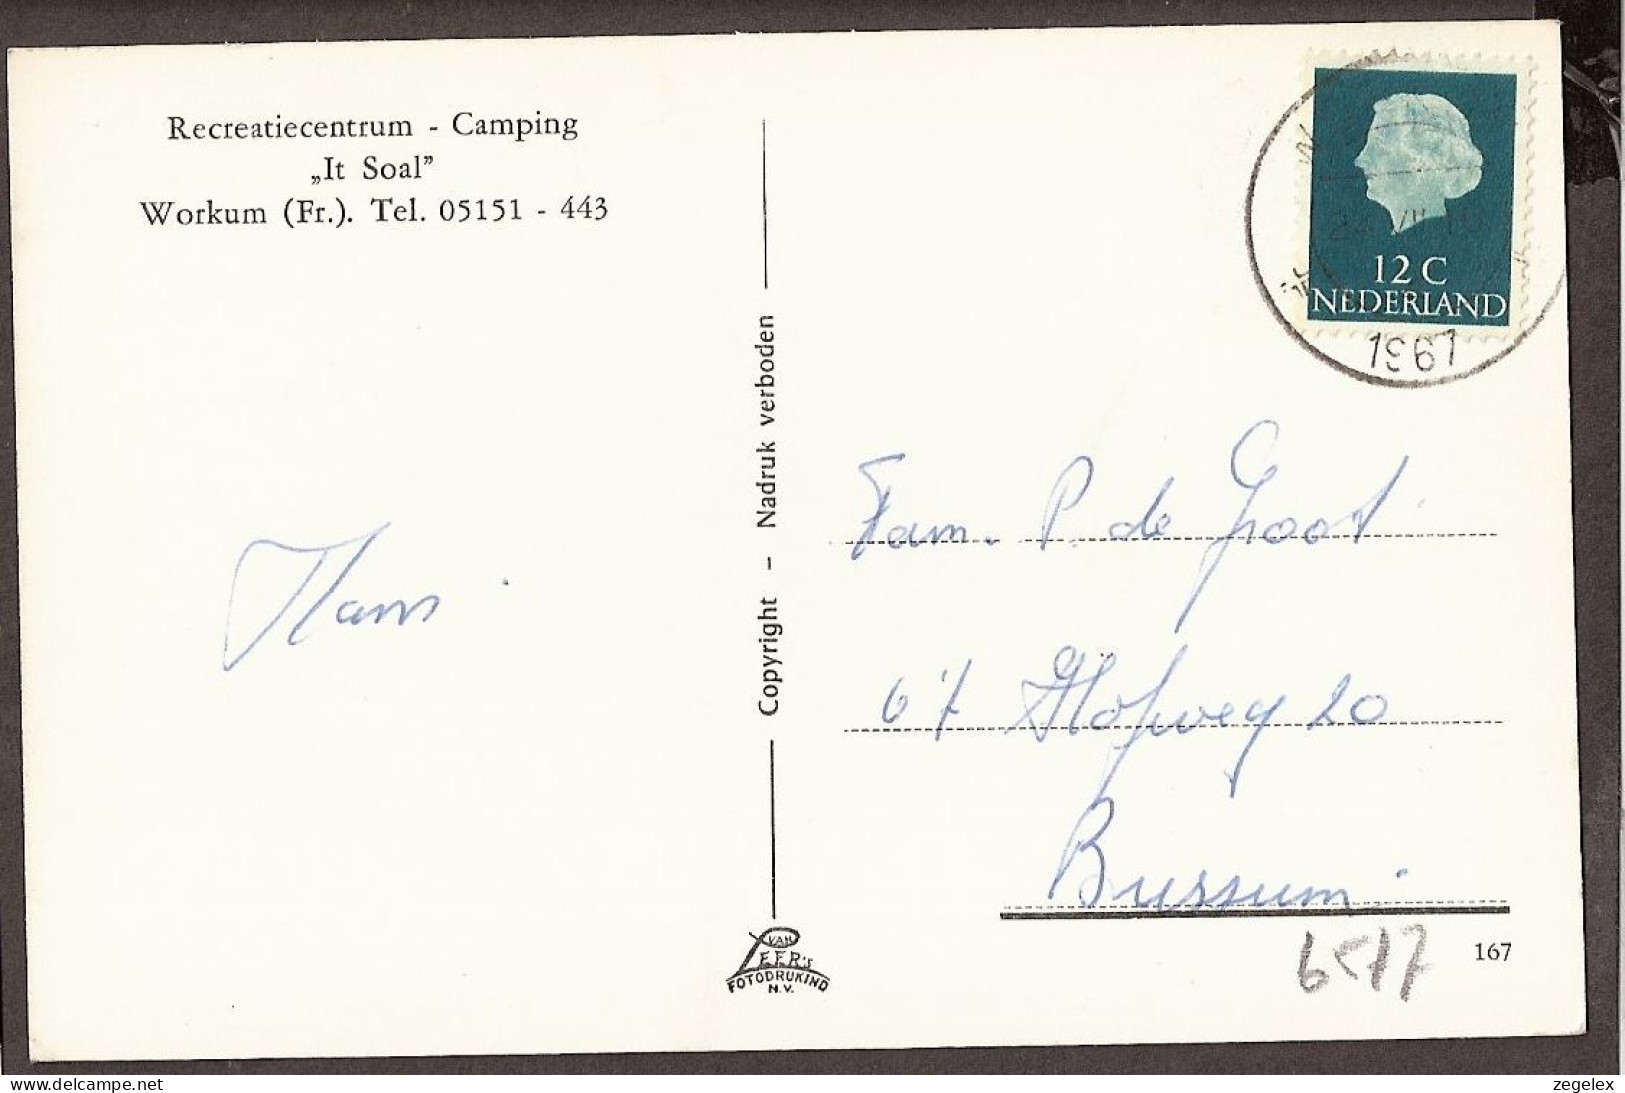 Recreatiecentrum - Camping
„It Soal”
Workum (Fr.). Tel. 05151 - 443
Hans
Copyright - Nadruk verboden
VAN
LEER'S
FOTODRUKIND
N.V.
12 C
NEDERLAND
1967
Fam. P. de Groot
Hofweg 20
Bussum
167
delcampe.net
zegelex